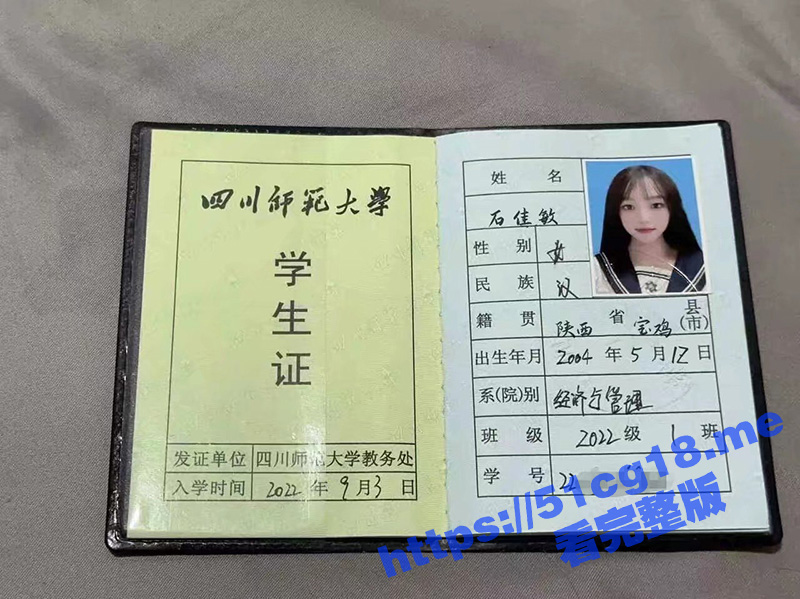 四川师范大学
学生证
发证单位 四川师范大学教务处
入学时间 2022 年 9 月 3 日
姓 名 石佳敏
性 别 女
民 族 汉
籍 贯 陕西 省 宝鸡 县(市)
出生年月 2004 年 5 月 12 日
系(院)别 经济与管理
班 级 2022 级 1 班
学 号 22
https://51cg18.me
看完整版